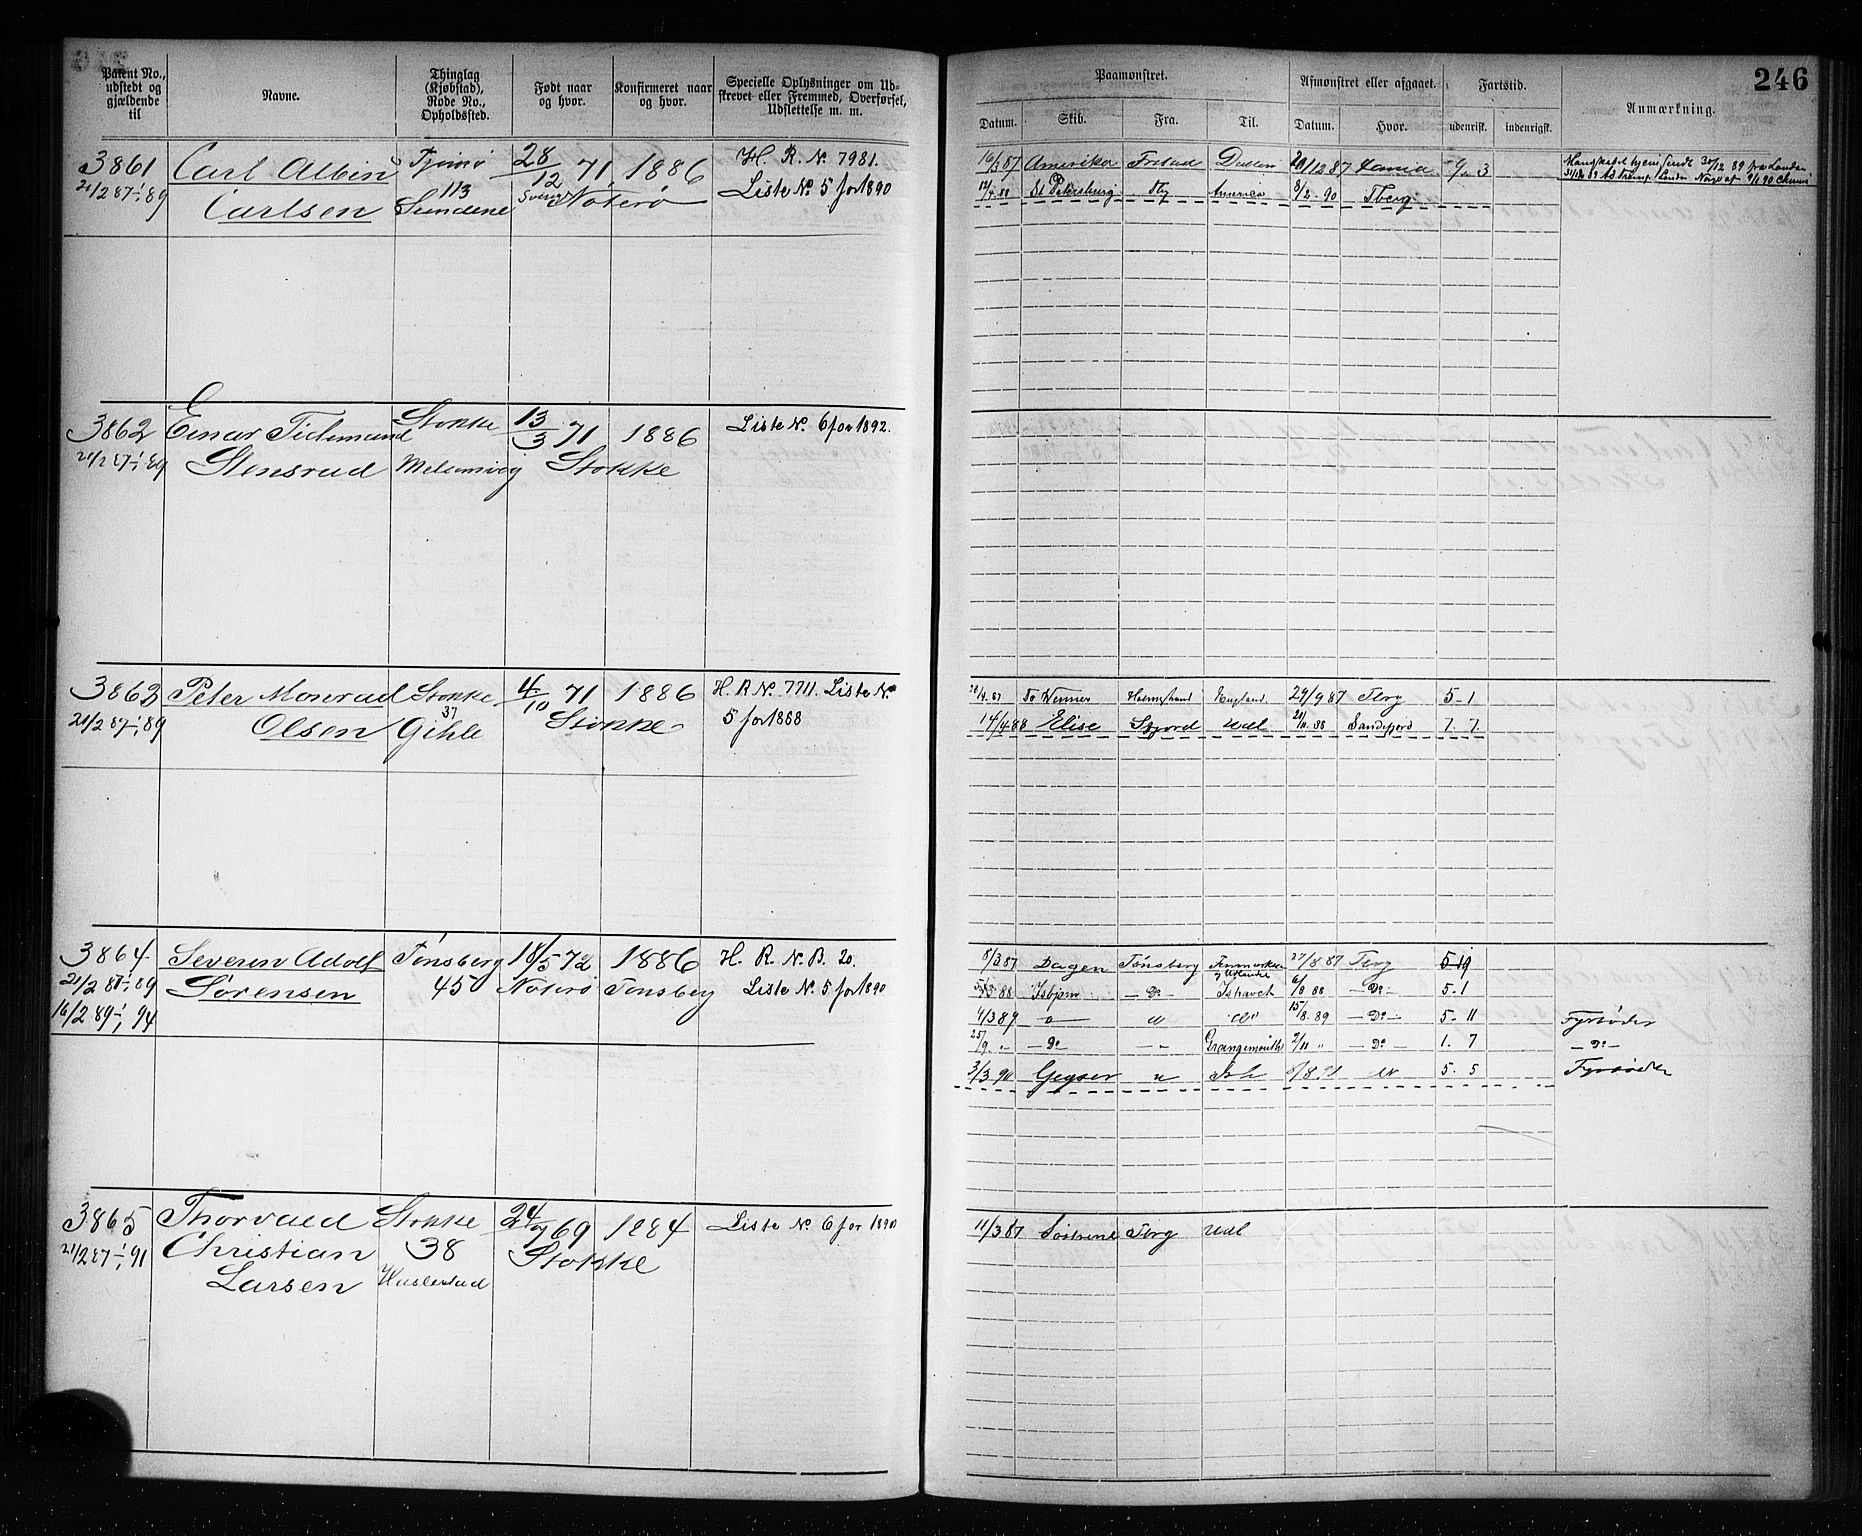 246
Patent No., udstedt og gjældende til
Navne.
Thinglag (Kjøbstad), Rode No., Opholdssted.
Født naar og hvor.
Konfirmeret naar og hvor.
Specielle Oplysninger om Udskrevet eller Fremmed, Overførsel, Udslettelse m. m.
Paamønstret.
Afmønstret eller afgaaet.
Fartstid.
Anmærkning.
Datum. Skib. Fra. Til. Datum. Hvor. udenrigsk. indenrigsk.
3861 Carl Albin Tjømø 28/12 71 1886 H. R. N. 7981.
21/2 87-1/1 89 Carlsen 113 Sundene Nøterø Liste No 5 for 1890
16/3 87 Amerika Fr.stad 20/12 87 9 " 3
12/4 88 St Petersburg 8/2 90 Tberg
3862 Einar Tidemand Stokke 13/3 71 1886 Liste No. 6 for 1892.
21/2 87-1/1 89 Stensrud Melsomvig Stokke
3863 Peter Monrad Stokke 4/10 71 1886 H. R No. 7711. Liste No
21/2 87-1/1 89 Olsen 37 Gihle Stokke 5 for 1888
28/4 87 Holmstrand England. 29/9 87 Tbrg 5-1
14/4 88 Elise Sfjord Udl 88 Sandefjord 7. 7.
3864 Severin Adolf Tønsberg 18/5 72 1886 H. R. N. B. 20.
21/2 87-1/1 89 Sørensen 45 Nøterø Tønsberg Liste No. 5 for 1890
16/2 89-1/1 94
8/3 87 Dagen Tønsberg 27/8 87 Tbrg 5-19
88 Isbjørn - Do - Ishavet 6/8 88 - Do - 5-1
4/3 89 " " Do 15/8 89 - Do - 5-11 Fyrbøder
25/9 " - Do - - " - Grangemouth 2/11 " - Do - 1. 7 - Do -
3/3 90 Geyser " Ish " 5. 5 Fyrbøder
3865 Thorvald Stokke 24/7 69 1884 Liste No. 6 for 1890
21/2 87-1/1 91 Christian 38 Stokke
Larsen Haslestad
11/3 87 Søstrene Tbrg Udl